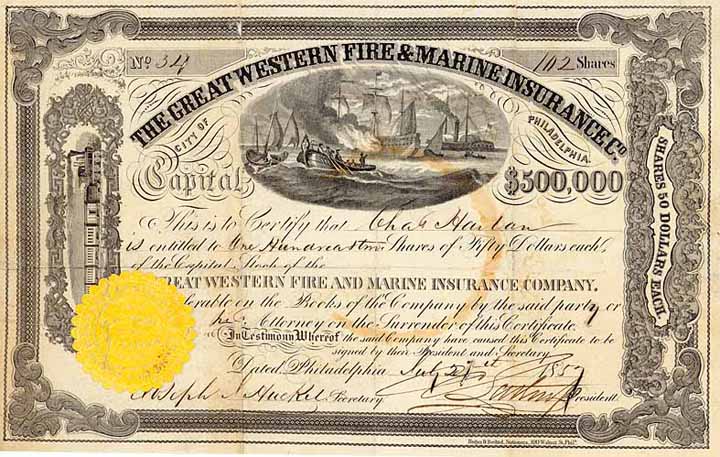 No 34
102 Shares
THE GREAT WESTERN FIRE & MARINE INSURANCE Co.
CITY OF
PHILADELPHIA.
Capital
$500,000
SHARES 50 DOLLARS EACH.
This is to Certify that Chas Harlan
is entitled to One Hundred & two Shares of Fifty Dollars each,
of the Capital Stock of the
GREAT WESTERN FIRE AND MARINE INSURANCE COMPANY.
ferable on the Books of the Company by the said party or
his Attorney on the Surrender of this Certificate
In Testimony Whereof the said Company have caused this Certificate to be
signed by their President and Secretary
Dated Philadelphia July 21st 1857
Joseph J. Huckel Secretary. President.
Stationers, Walnut St. Phila.